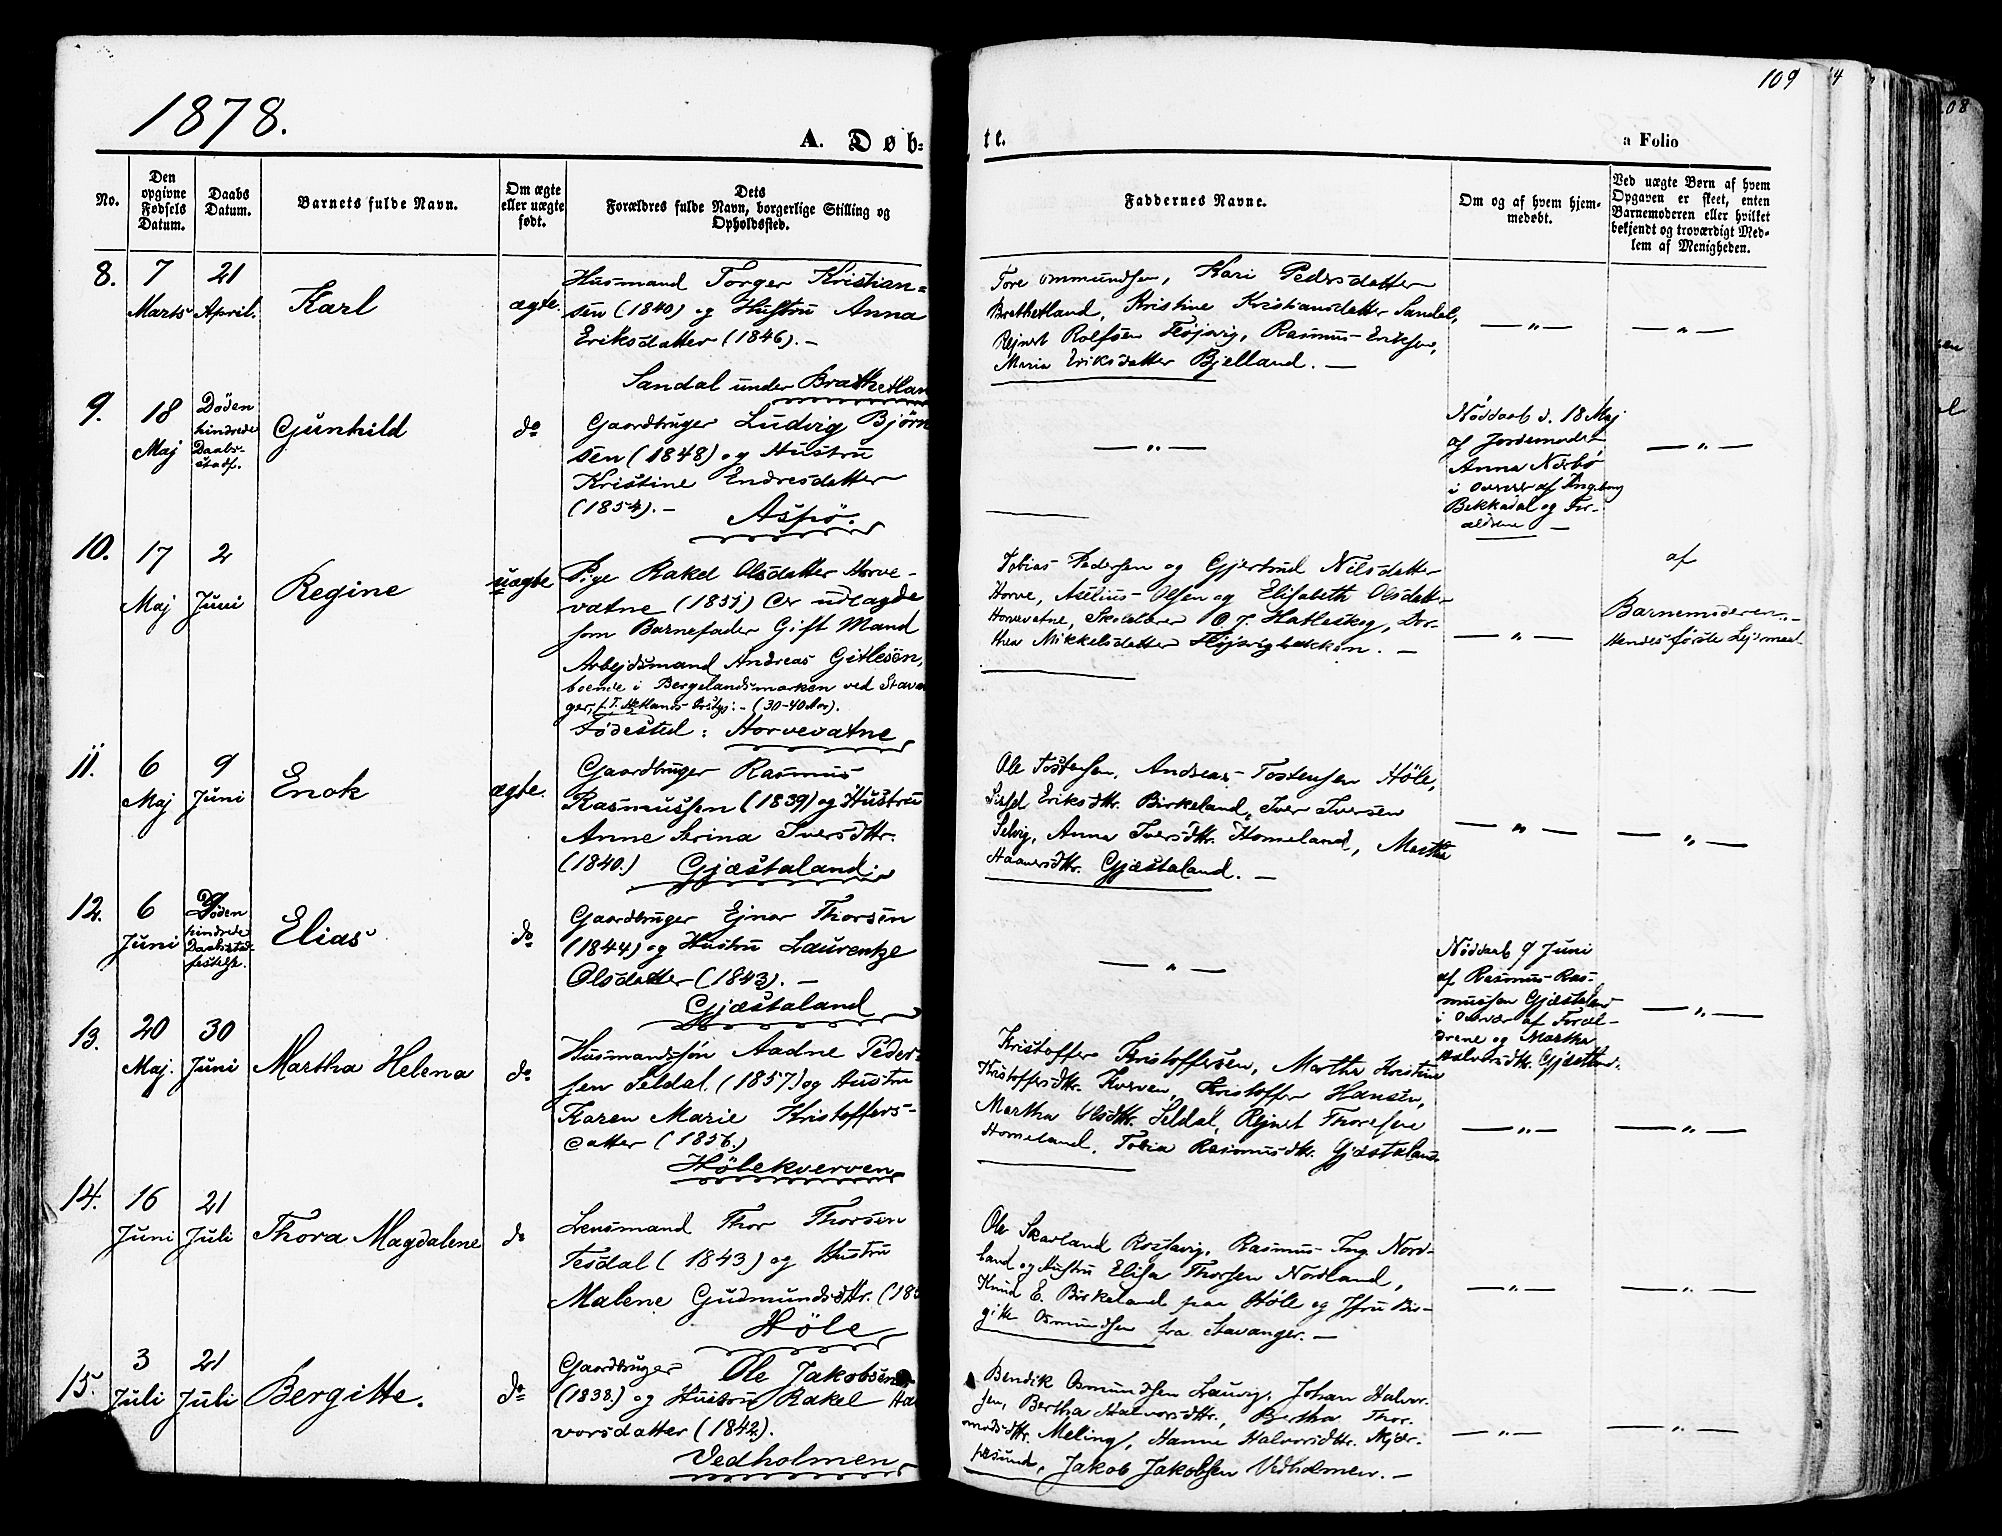 1878.
109
A. Døb-
te.
a Folio
No.
Den opgivne Fødsels Datum.
Daabs Datum.
Barnets fulde Navn.
Om ægte eller uægte født.
Dets Forældres fulde Navn, borgerlige Stilling og Opholdssted.
Faddernes Navne.
Om og af hvem hjemmedøbt.
Ved uægte Børn af hvem Opgaven er skeet, enten Barnemoderen eller hvilket bekjendt og troværdigt Medlem af Menigheden.
8.
7 Marts
21 April.
Karl
ægte.
Husmand Torger Kristian=
sen (1840) og Hustru Anna
Eriksdatter (1846). –
Sandal under Brathetlan
Tore Ommundsen, Kari Pedersdatter
Brathetland, Kristine Kristiansdatter Sandal,
Rejnert Rolfsen Fløjsvig, Rasmus Eriksen,
Maria Eriksdatter Bjelland. –
— „ —
— „ —
9.
18 Maj
Døden
hindrede
Daabs-
stadf.
Gunhild
do
Gaardbruger Ludvig Bjørn
sen (1848) og Hustru
Kristine Endresdatter
(1854). –
Aspø.
— „ —
Nøddaab d. 18 Maj
af Jordemoder
Anna Norbø
i Overvær af Ingeborg
Bekkadal og For-
ældrene –
— „ —
10.
17 Maj
2 Juni
Regine
uægte
Pige Rakel Olsdatter Horve-
vatne (1851) Er udlagde
som Barnefader Gift Mand
Arbejdsmand Andreas Gitlesen,
boende i Bergelandsmarken ved Stavan
ger, (30-40 Aar).
Fødested: Horvevatne
Tobias Pedersen og Gjertrud Nilsdatter
Horve, Aselius Olsen og Elisabeth Olsdatt-
Horvevatne, Skolelærer O J. Hatleskog, Dor-
thea Mikkelsdatter Fløjsvigbakken. –
— „ —
af
Barnemoderen..
Hendes første Lejermaal
11.
6 Maj
9 Juni
Enok
ægte.
Gaardbruger Rasmus
Rasmussen (1839) og Hustru
Anne Serina Iversdttr.
(1840.) Gjæstaland.
Ole Tostensen, Andreas Tostensen Høle,
Sissel Eriksdttr. Birkeland, Iver Iversen
Selvig, Anna Iversdttr. Homeland, Martha
Haaversdttr. Gjæstaland. –
— „ —
— „ —
12.
6 Juni
Døden
hindrede
Elias
do
Gaardbruger Ejnar Thorsen
(1844) og Hustru Laurentze
Olsdatter (1843). –
Gjæstaland
— „ —
Nøddaab 9 Juni
af Rasmus Ras-
mussen Gjæstaland
i Overvær af Foræl-
drene og Martha
Halvorsdttr. Gjæstland.
— „ —
13.
20 Maj.
30 Juni
Martha Helena
do
Husmandssøn Aadne Peder-
sen Seldal. (1857) og Hustru
Karen Marie Kristoffers-
datter (1856.)
Hølekverven
Kristoffer Kristoffersen, Marthe Kristine
Kristoffersdttr. Kverven, Kristoffer Hansen,
Martha Olsdttr. Seldal, Rejnert Thoresen
Homeland, Tobia Rasmusdttr. Gjæstaland
— „ —
— „ —
14.
16 Juni
21 Juli
Thora Magdalene
do
Lensmand Thor Thorsen
Tesdal (1843) og Hustru
Malene Gudmundsdttr. (18
Høle
Ole Skarland Rossavig, Rasmus Ing. Nord-
land og Hustru Elisa Thorsen Nordland,
Knud E. Birkeland paa Høle og Jfru Bir-
gitte Osmundsen fra Stavanger. –
— „ —
— „ —
15.
3 Juli
21 Juli
Bergitte.
do
Gaardbruger Ole Jakobsen
(1838.) og Hustru Rakel Hal
vorsdatter (1842).
Vedholmen
Bendik Osmundsen Lauvig, Johan Halvor-
sen, Bertha Halvorsdttr., Bertha Thor-
modsdttr. Meling, Hanne Halvorsdttr.
Jakob Jakobsen Vedholmen. –
— „ —
— „ —